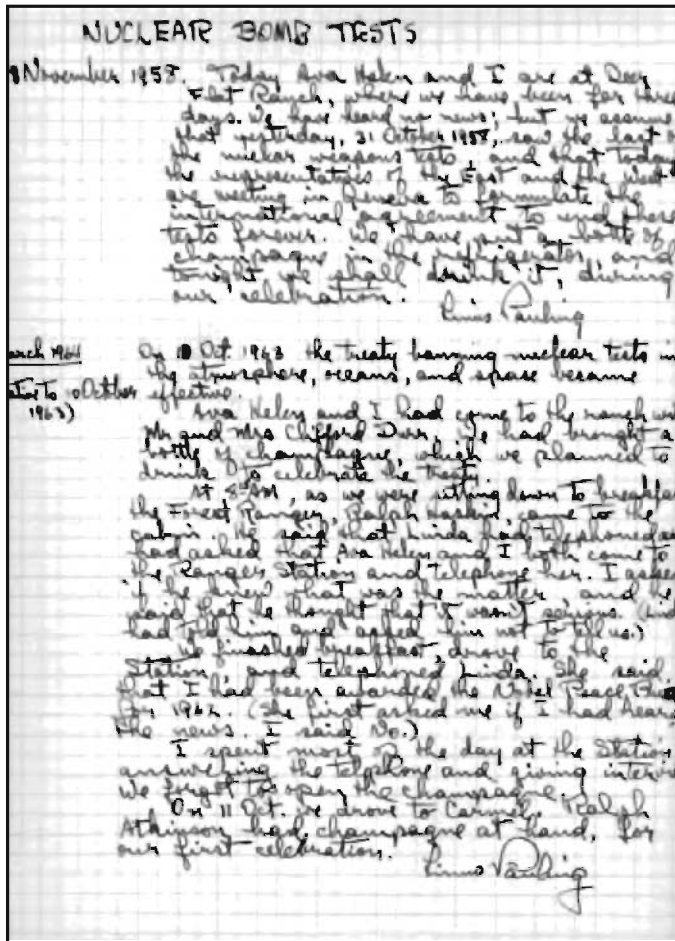 NUCLEAR BOMB TESTS
November 1958. Today Ava Helen and I are at Deer
Flat Ranch, where we have been for three
days. We have heard no news; but we assume
that yesterday, 31 October 1958, saw the last
the nuclear weapons tests, and that today
the representatives of the East and the West
are meeting in Geneva to formulate the
international agreement to end these
tests forever. We have put a bottle of
champagne in the refrigerator, and
tonight we shall drink it, during
our celebration.
Linus Pauling
arch 1964
On 10 Oct. 1963 the treaty banning nuclear tests in
the atmosphere, oceans, and space became
to October
effective.
1963)
Ava Helen and I had come to the ranch
Mr and Mrs Clifford Durr. We had brought a
bottle of champagne, which we planned to
drink to celebrate the treaty.
At 8 AM, as we were sitting down to breakfas
the Forest Ranger, Ralph Haskin, came to the
cabin. He said that Linda had telephoned
had asked that Ava Helen and I both come to
the Ranger Station and telephone her. I asked
if he knew what was the matter, and he
said that he thought that it wasn't serious. (
had told him and asked him not to tell us.)
We finished breakfast, drove to the
Station, and telephoned Linda. She said
that I had been awarded the Nobel Peace
for 1962. (She first asked me if I had hear
the news. I said No.)
I spent most of the day at the Station
answering the telephone and giving interv
We forgot to open the champagne.
On 11 Oct. we drove to Carmel. Ralph
Atkinson had champagne at hand, for
our first celebration.
Linus Pauling